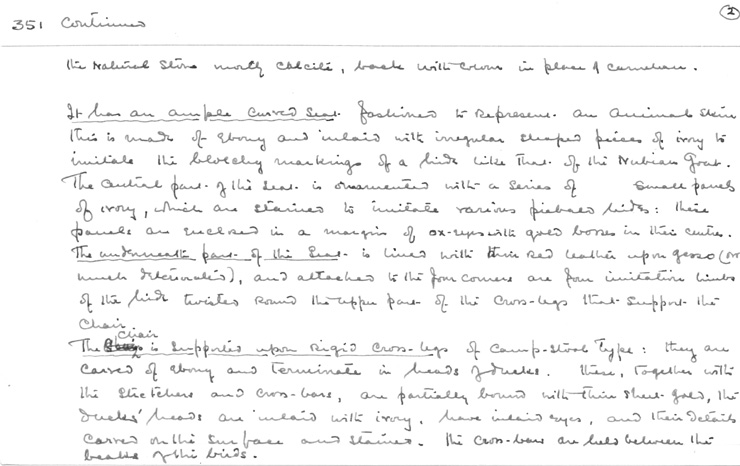 351 Continued
2
the Natural Stone mostly calcite, back with crown in place of carnelian.
It has an ample curved seat fashioned to represent an animal's skin
this is made of ebony and inlaid with irregular shaped pieces of ivory to
imitate the blotchy markings of a hide like that of the Nubian Goat.
The Central part of the Seat is ornamented with a series of small panels
of ivory, which are stained to imitate various piebald hides: these
panels are enclosed in a margin of ox-eyes with gold bosses in their centre.
The underneath part of the Seat is lined with thin red leather upon gesso (now
much deteriorated), and attached to the four corners are four imitation limbs
of the hide twisted round the upper part of the Cross-legs that support the
Chair.
The Chair is supported upon rigid Cross-legs of Camp-Stool type: they are
carved of ebony and terminate in heads of ducks. These, together with
the Stretchers and Cross-bars, are partially bound with thin sheet-gold, the
ducks' heads are inlaid with ivory, have inlaid eyes, and their details
carved on the surface and stained. The Cross-bars are held between the
beaks of the birds.